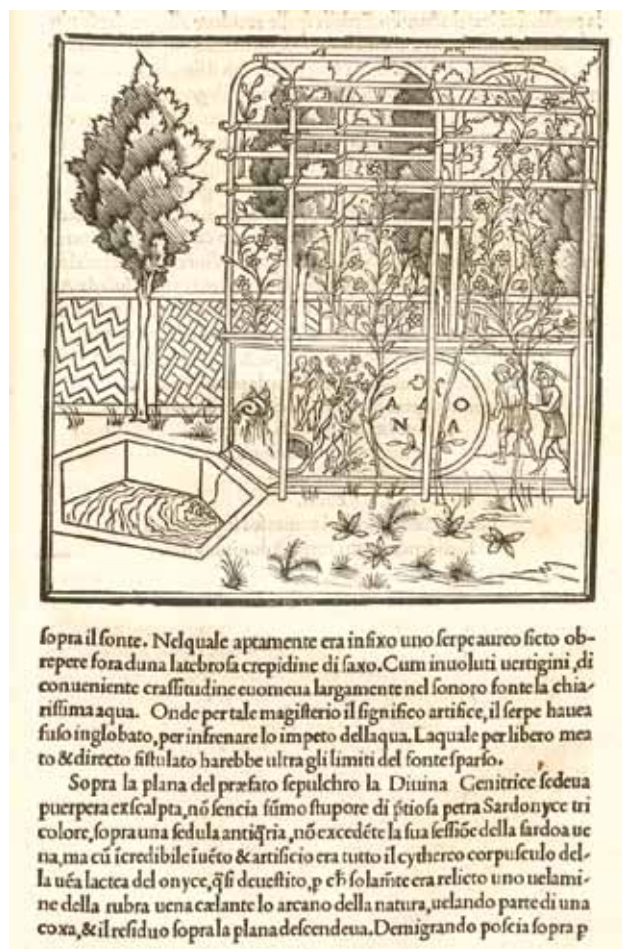 A Δ O
N I A
ſopra il fonte. Nelquale aptamente era infixo uno ſerpe aureo ficto ob-
repere fora duna latebroſa crepidine di ſaxo. Cum inuoluti uertigini, di
conueniente craſſitudine euomeua largamente nel ſonoro fonte la chia-
riſſima aqua. Onde per tale magiſterio il ſignifico artifice, il ſerpe hauea
fuſo inglobato, per infrenare lo impeto dellaqua. Laquale per libero mea
to & directo fiſtulato harebbe ultra gli limiti del fonte ſparſo.
Sopra la plana del præfato ſepulchro la Diuina Genitrice ſedeua
puerpera exſcalpta, nõ ſencia ſũmo ſtupore di p̃tioſa petra Sardonyce tri
colore, ſopra una ſedula antiq̃ria, nõ excedẽte la ſua ſeſſiõe della ſardoa ue
na, ma cũ ĩcredibile ĩuẽto & artificio era tutto il cythereo corpuſculo del-
la uẽa lactea del onyce, q̃ſi deueſtito, p ch̃ ſolam̃te era relicto uno uelami-
ne della rubra uena cælante lo arcano della natura, uelando parte di una
coxa, & il reſiduo ſopra la plana deſcendeua. Demigrando poſcia ſopra p